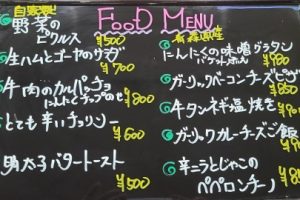 FOOD MENU
自家製
野菜の
ピクルス
¥500
生ハムとゴーヤのサラダ
¥700
牛肉のカルパッチョ
にんにくチップのせ ¥800
とても辛いチョリソー
¥600
明太子バタートースト
¥500
青森県産
にんにくの味噌グラタン
バケット添え ¥980
ガーリックベーコンチーズピザ
¥850
牛タンネギ塩焼き
¥900
ガーリックカレーチーズご飯
¥900
辛ニラとじゃこの
ペペロンチーノ
¥850